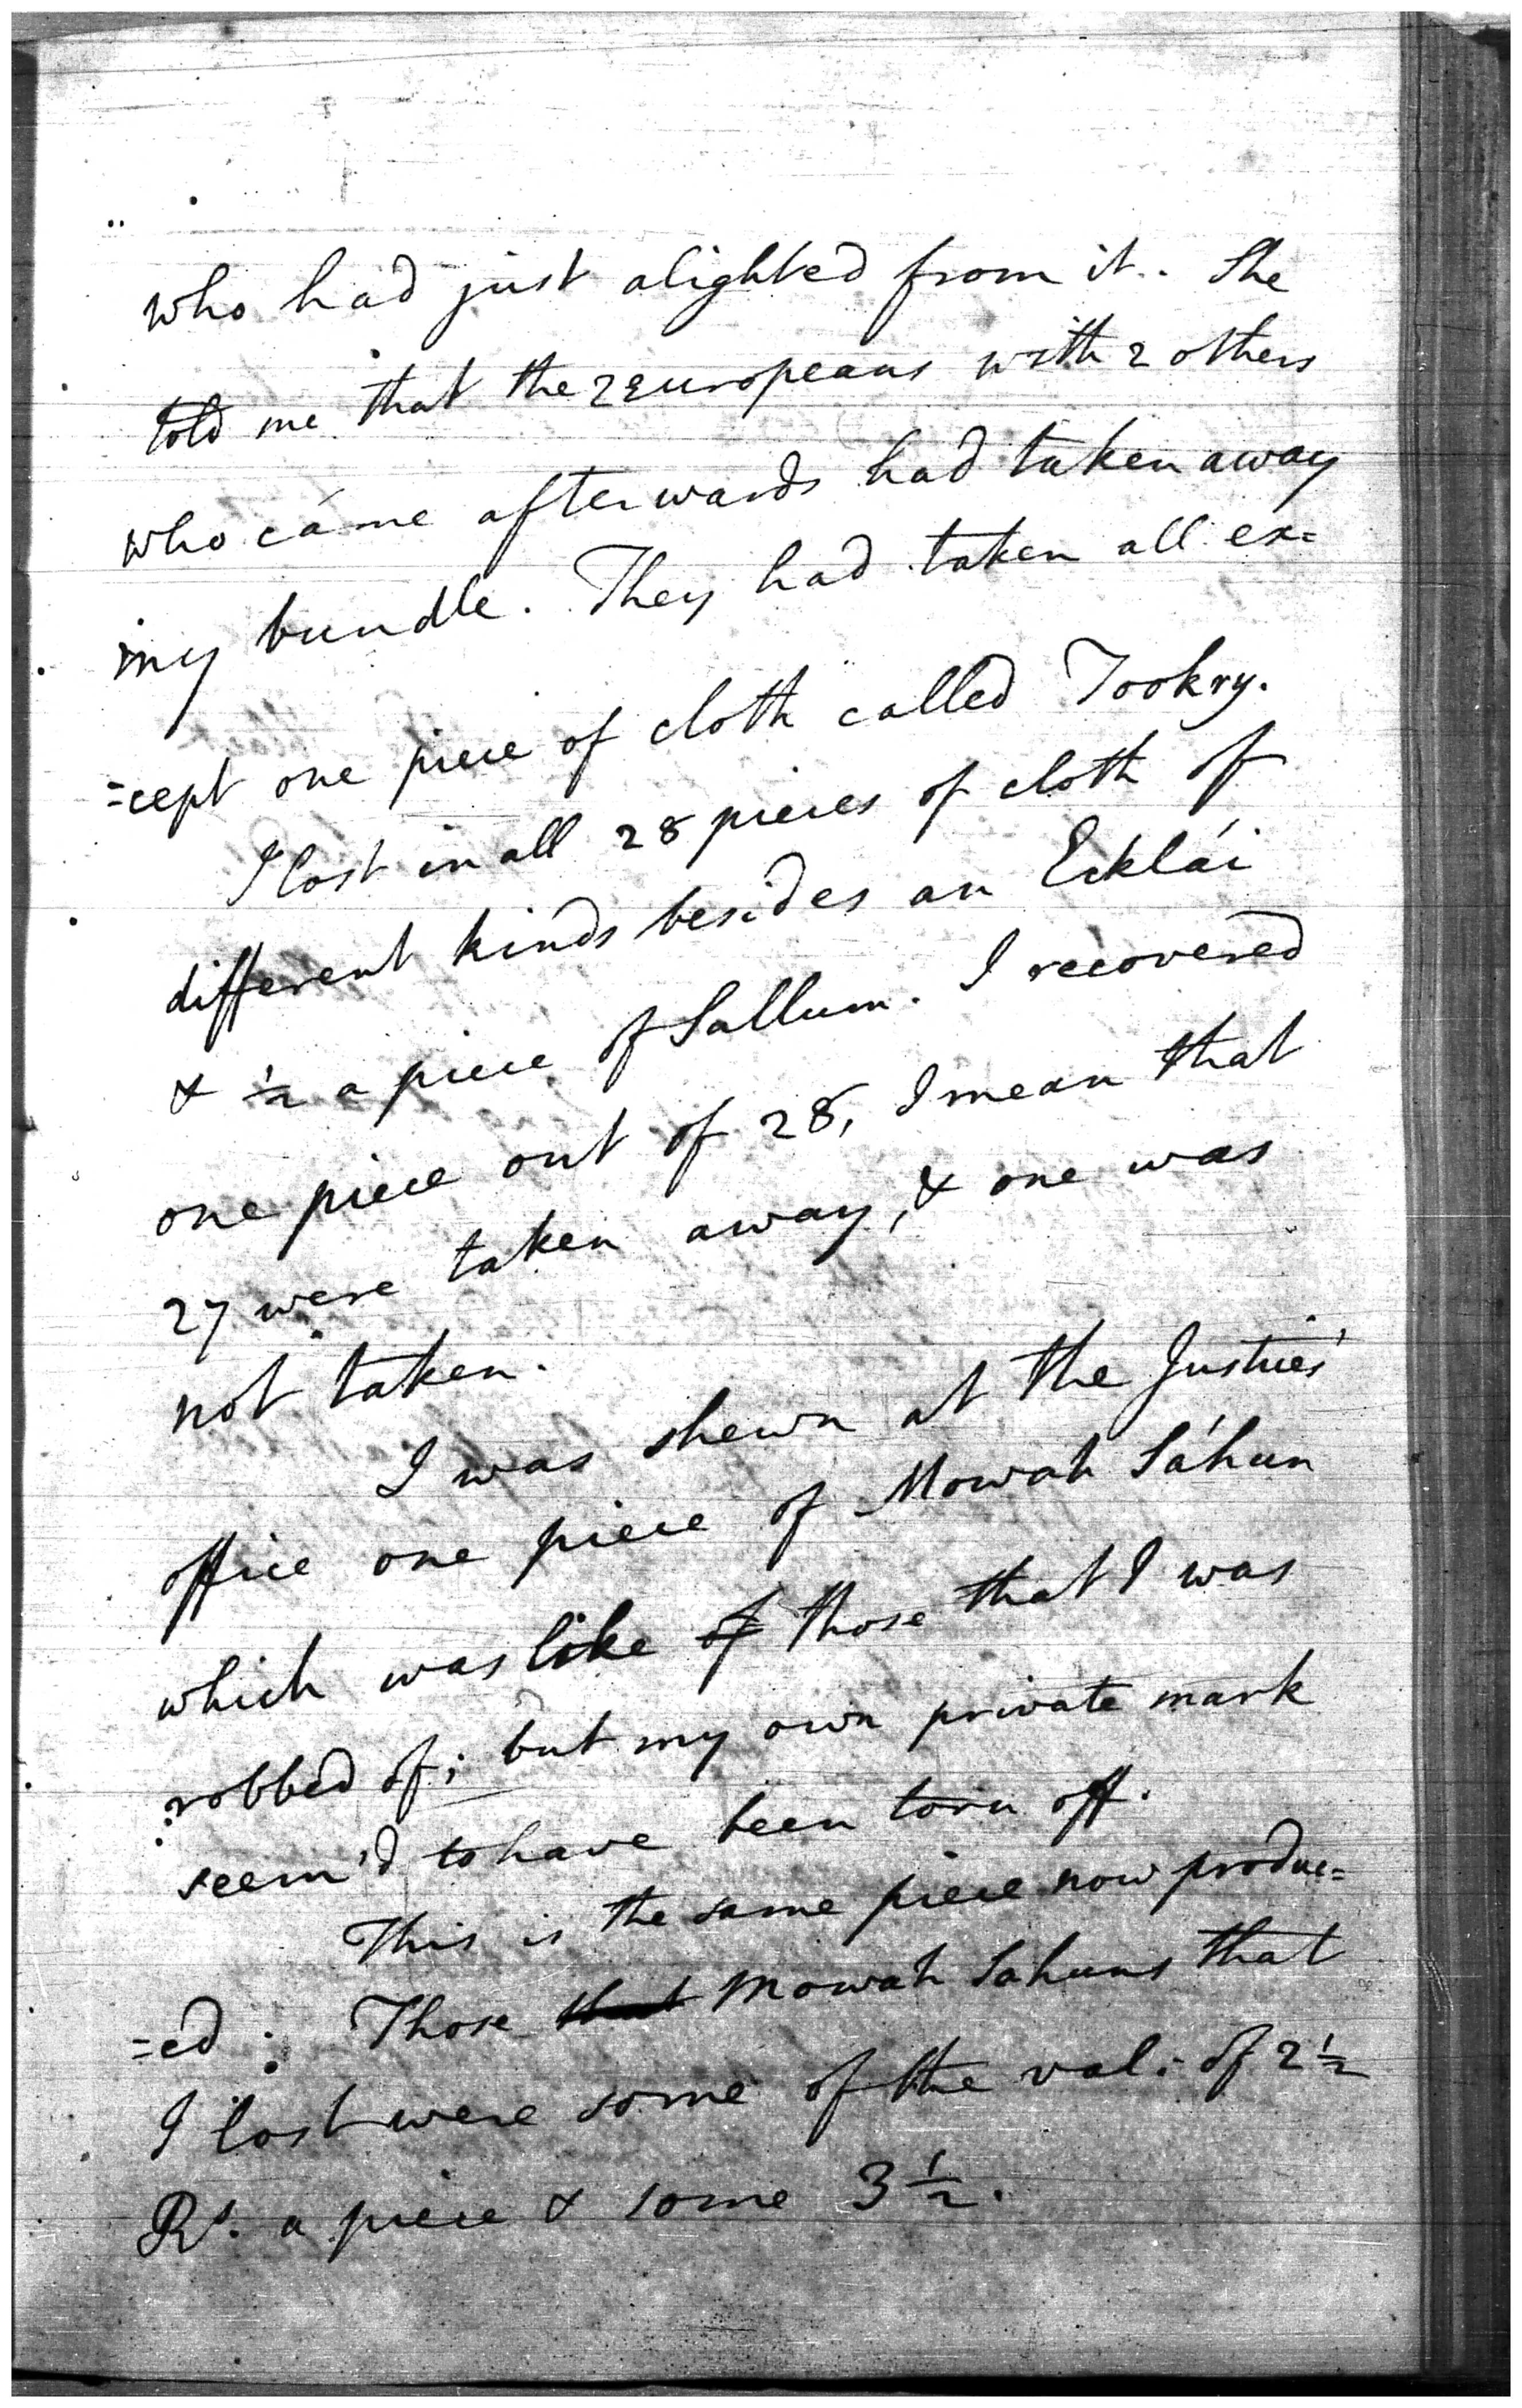 who had just alighted from it. She
told me that the 2 Europeans with 2 others
who came afterwards had taken away
my bundle. They had taken all ex=
=cept one piece of cloth called Tookry.
I lost in all 28 pieces of cloth of
different kinds besides an Ecklái
& ½ a piece of Sallum. I recovered
one piece out of 28, I mean that
27 were taken away, & one was
not taken.
I was shewn at the Justices'
office one piece of Mowah Sáhun
which was like of those that I was
robbed of; but my own private mark
seem'd to have been torn off.
This is the same piece now produc=
=ed: Those that Mowah Sahuns that
I lost were some of the val: of 2½
Rs. a piece & some 3½.